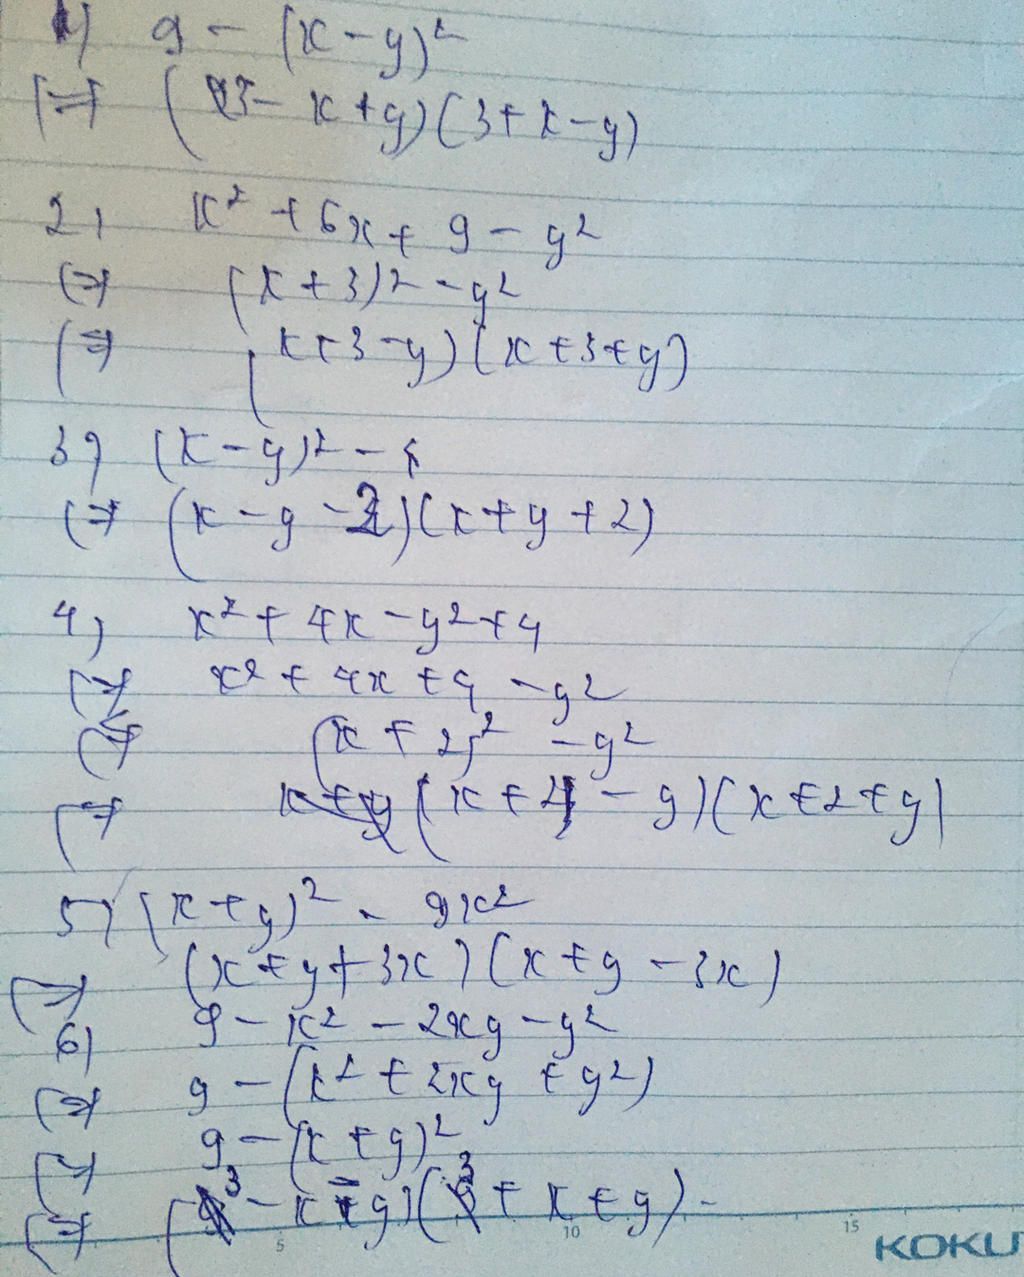 1) 9 - (x - y)²
(=) (3 - x + y)(3 + x - y)
2, x² + 6x + 9 - y²
(=) (x + 3)² - y²
(=) (x + 3 - y)(x + 3 + y)
3) (x - y)² - 4
(=) (x - y - 2)(x + y + 2)
4) x² + 4x - y² + 4
(=) x² + 4x + 4 - y²
(=) (x + 2)² - y²
(=) (x + 2 - y)(x + 2 + y)
5) (x + y)² - 9x²
(=) (x + y + 3x)(x + y - 3x)
6) 9 - x² - 2xy - y²
(=) 9 - (x² + 2xy + y²)
(=) 9 - (x + y)²
(=) (3 - x - y)(3 + x + y)
5 10 15
KOKU